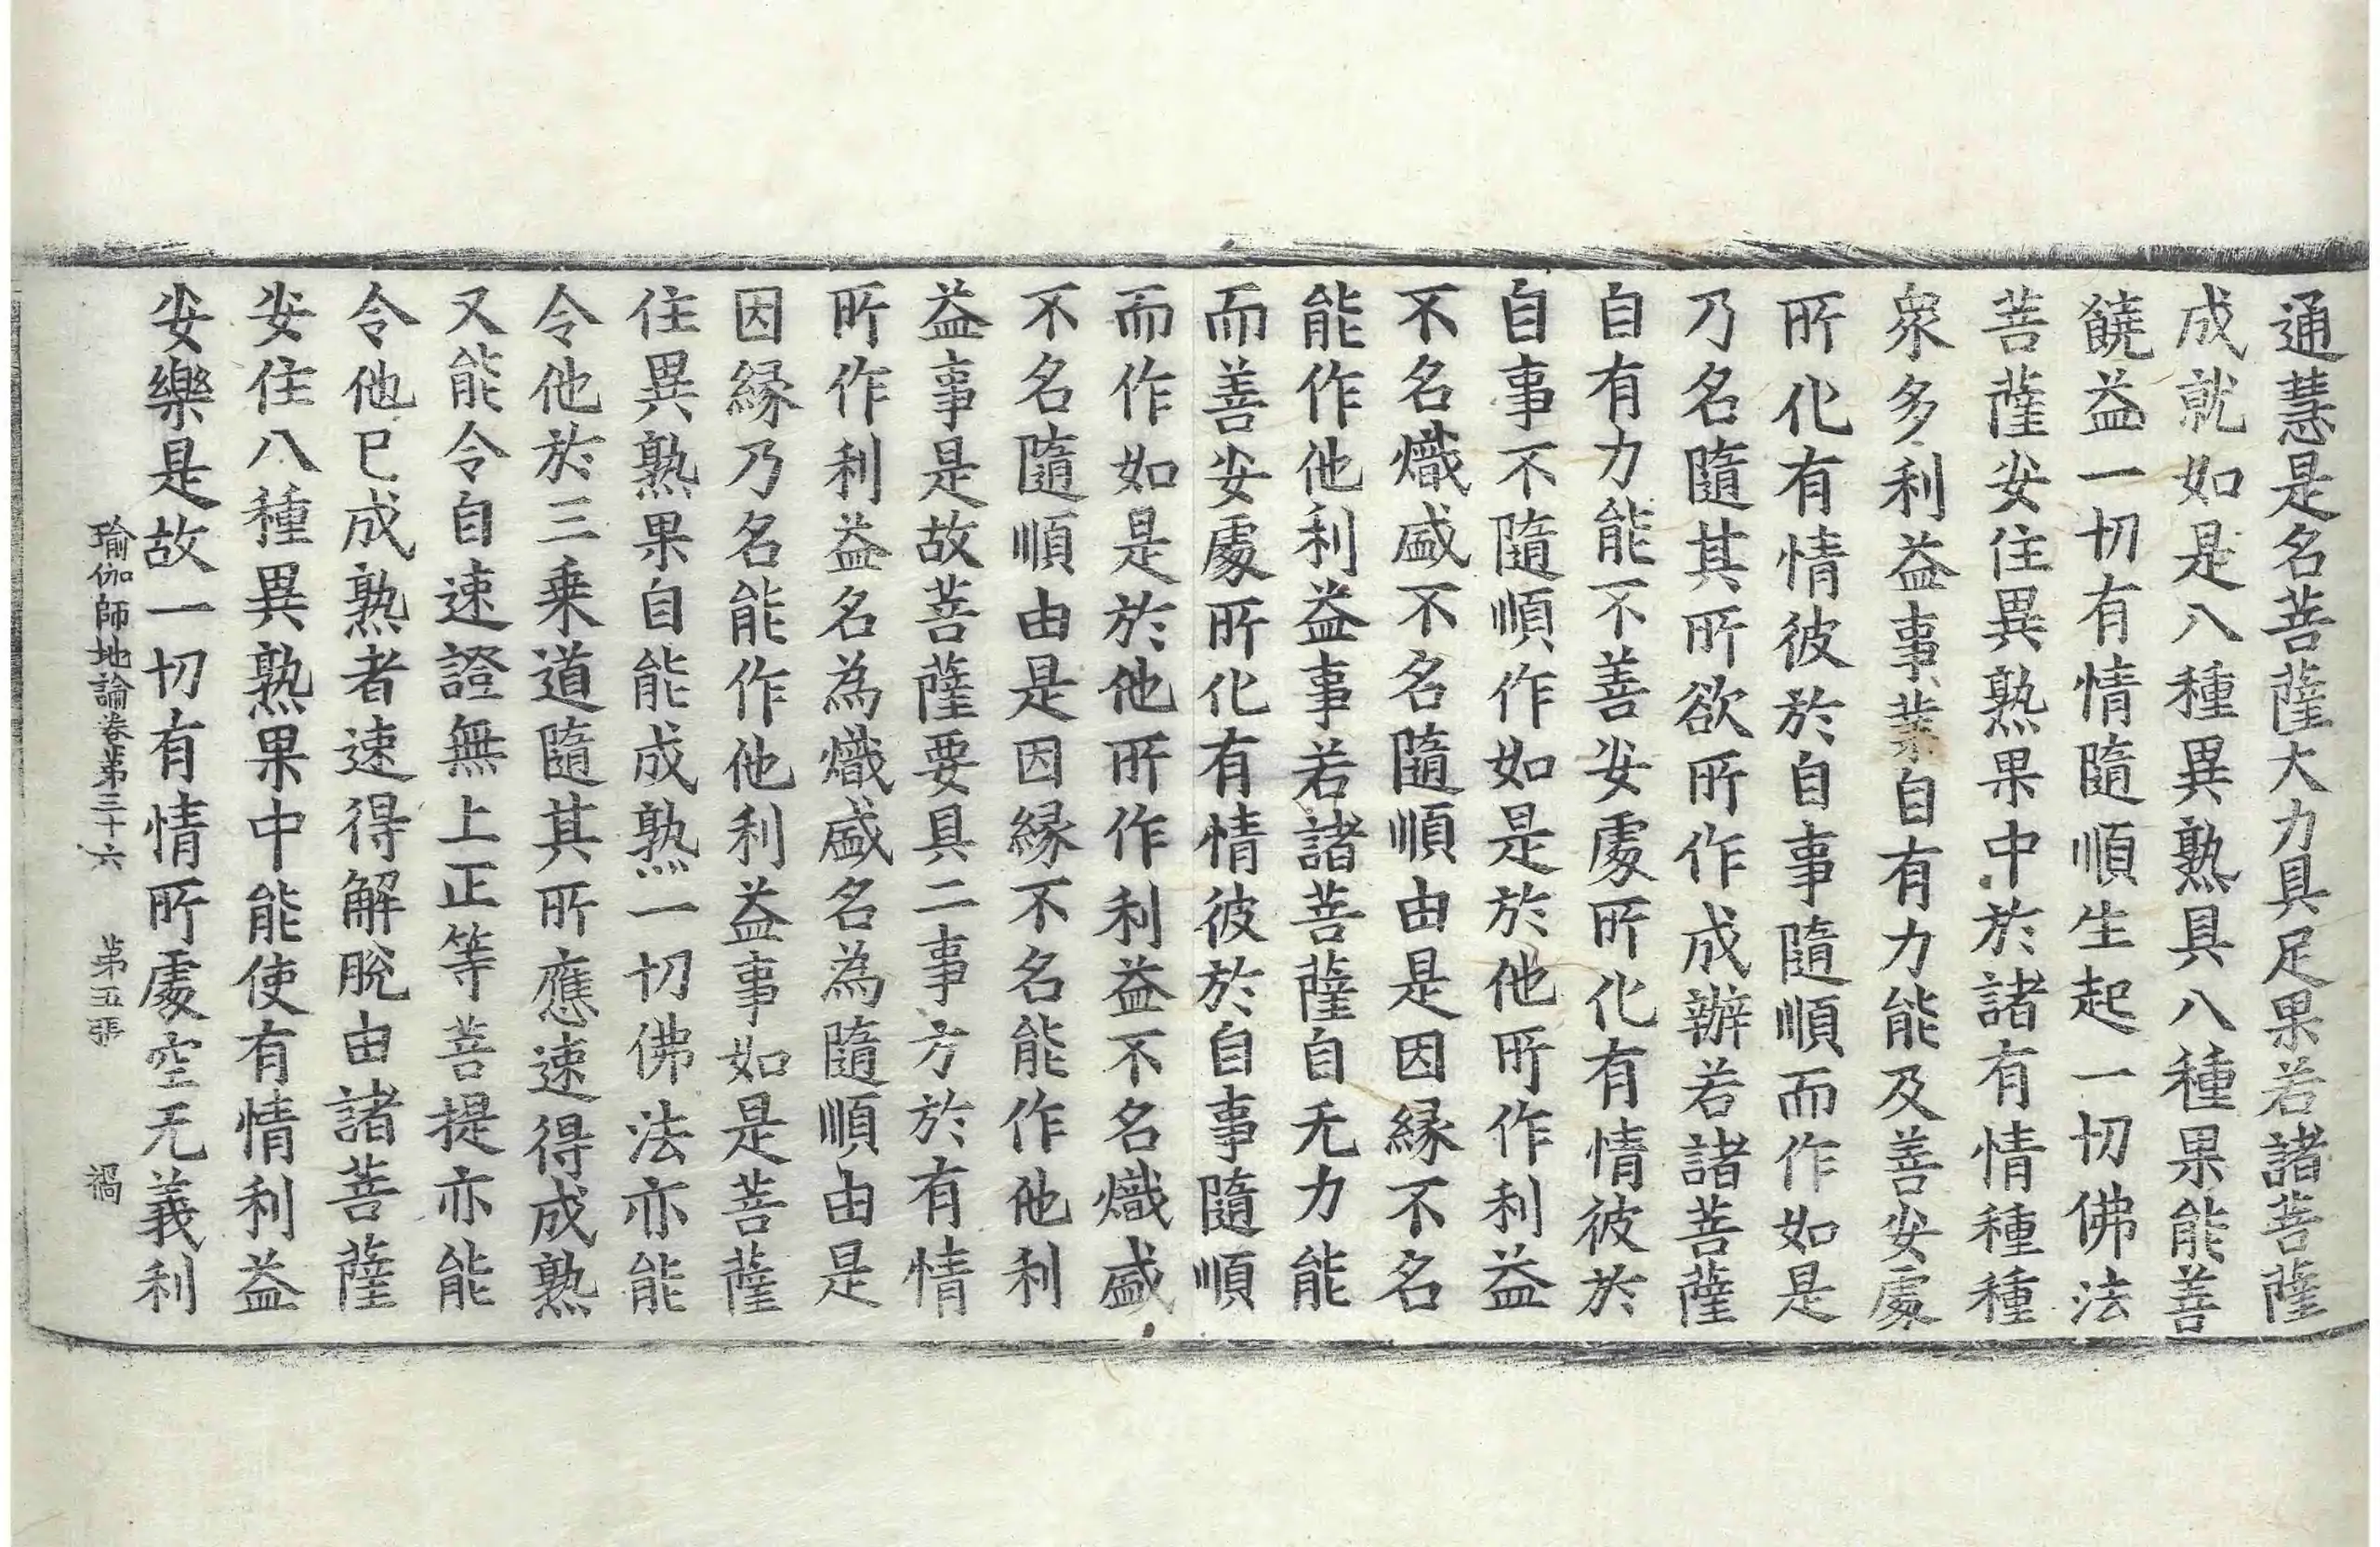 通慧是名菩薩大力具足果若諸菩薩
成就如是八種異熟具八種果能善
饒益一切有情隨順生起一切佛法
菩薩安住異熟果中於諸有情種種
衆多利益事業自有力能及善安處
所化有情彼於自事隨順而作如是
乃名隨其所欲所作成辦若諸菩薩
自有力能不善安處所化有情彼於
自事不隨順作如是於他所作利益
不名熾盛不名隨順由是因緣不名
能作他利益事若諸菩薩自无力能
而善安處所化有情彼於自事隨順
而作如是於他所作利益不名熾盛
不名隨順由是因緣不名能作他利
益事是故菩薩要具二事方於有情
所作利益名為熾盛名為隨順由是
因緣乃名能作他利益事如是菩薩
住異熟果自能成熟一切佛法亦能
令他於三乗道隨其所應速得成熟
又能令自速證無上正等菩提亦能
令他已成熟者速得解脫由諸菩薩
安住八種異熟果中能使有情利益
安樂是故一切有情所處空无義利
瑜伽師地論卷第三十六 第五張 禍